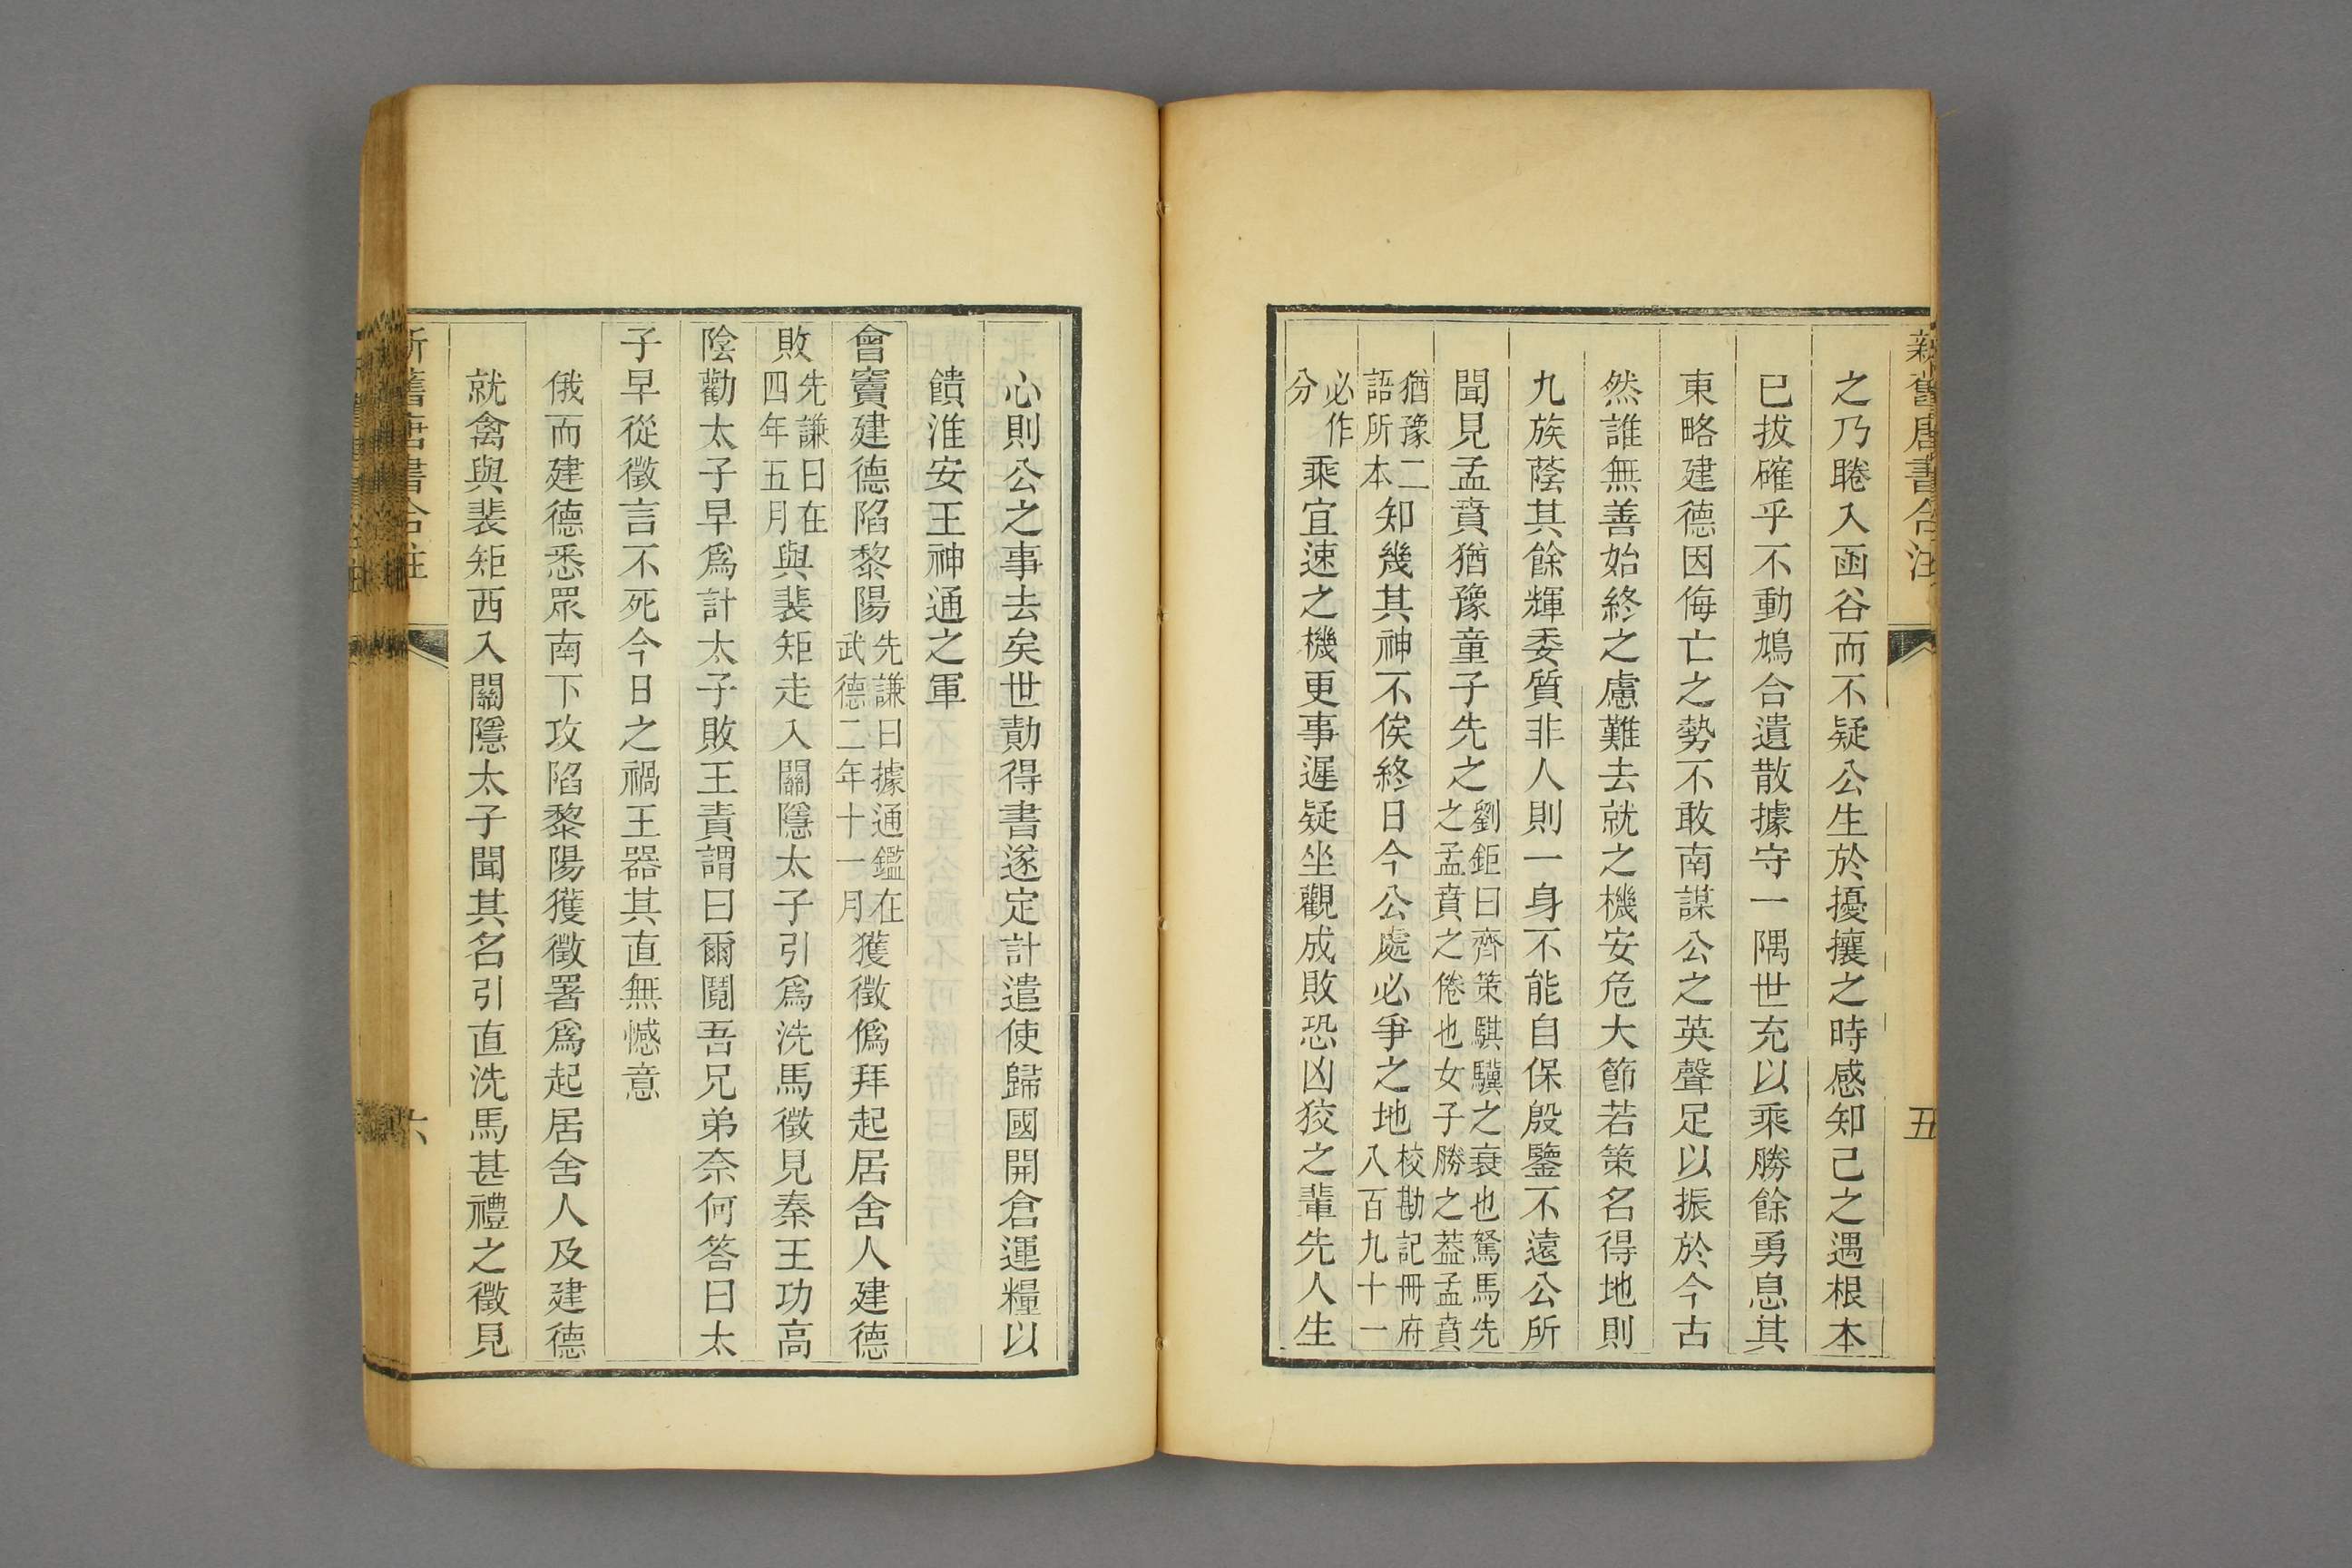 新舊唐書合注
五
之乃睠入函谷而不疑公生於擾攘之時感知己之遇根本
已拔確乎不動鳩合遺散據守一隅世充以乘勝餘勇息其
東略建德因侮亡之勢不敢南謀公之英聲足以振於今古
然誰無善始終之慮難去就之機安危大節若策名得地則
九族蔭其餘輝委質非人則一身不能自保殷鑒不遠公所
聞見孟賁猶豫童子先之劉鉅曰齊策騏驥之衰也駑馬先之孟賁之倦也女子勝之葢孟賁
猶豫二語所本知幾其神不俟終日今公處必爭之地校勘記冊府八百九十一
必作分乘宜速之機更事遲疑坐觀成敗恐凶狡之輩先人生
心則公之事去矣世勣得書遂定計遣使歸國開倉運糧以
饋淮安王神通之軍
會竇建德陷黎陽先謙曰據通鑑在武德二年十一月獲徵僞拜起居舍人建德
敗先謙曰在四年五月與裴矩走入關隱太子引爲洗馬徵見秦王功高
陰勸太子早爲計太子敗王責謂曰爾鬩吾兄弟奈何答曰太
子早從徵言不死今日之禍王器其直無憾意
俄而建德悉眾南下攻陷黎陽獲徵署爲起居舍人及建德
就禽與裴矩西入關隱太子聞其名引直洗馬甚禮之徵見
新舊唐書合注
六